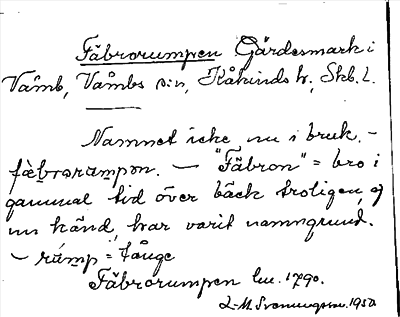 Fäbrorumpen Gärdesmark i
Våmb, Våmbs s:n, Kåkinds h., Skb. l.
Namnet icke nu i bruk. –
fæ̀brorumpən. – "Fäbron" = bro i
gammal tid över bäck troligen, ej
nu känd, har varit namngrund.
– rùmp = tånge
Fäbrorumpen lm. 1790.
L-M. Svenungsson. 1950